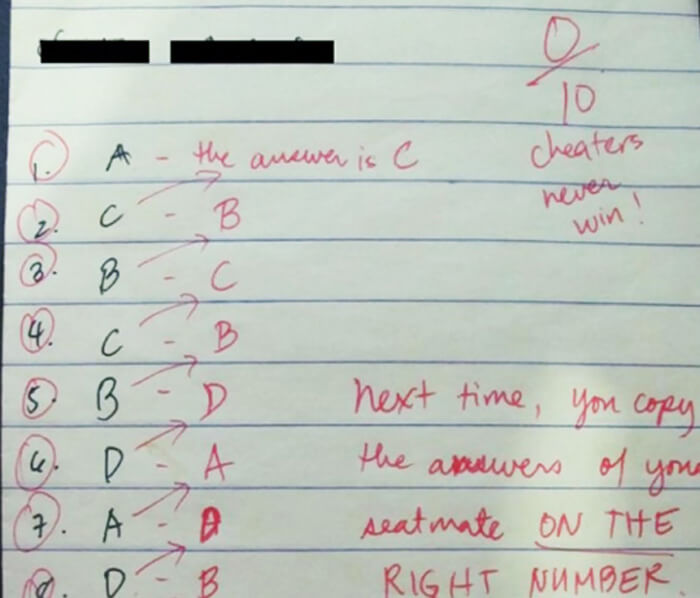 0
10
1. A - the answer is C
cheaters
never
win!
2. C - B
3. B - C
4. C - B
5. B - D
Next time, you copy
6. D - A
the answers of your
7. A - D
seatmate ON THE
8. D - B
RIGHT NUMBER.